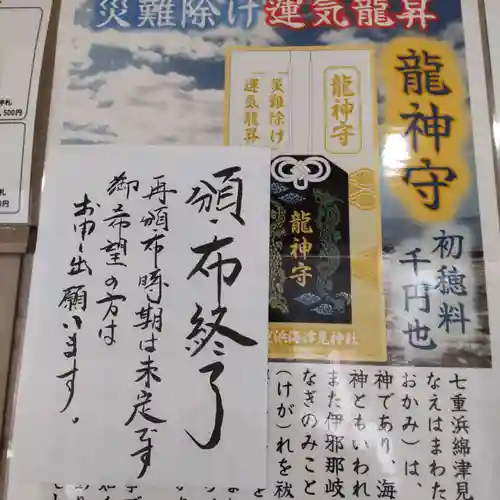 災難除け運気龍昇
龍神守
初穂料
千円也
龍神守
災難除け
運気龍昇
龍神守
頒布終了
再頒布時期は未定です
御希望の方は
お申し出願います。
七重浜綿津見
なえはまわた
おかみ）は、
神であり、海
神ともいわれ
また伊邪那岐
なぎのみこと
（けが）れを祓